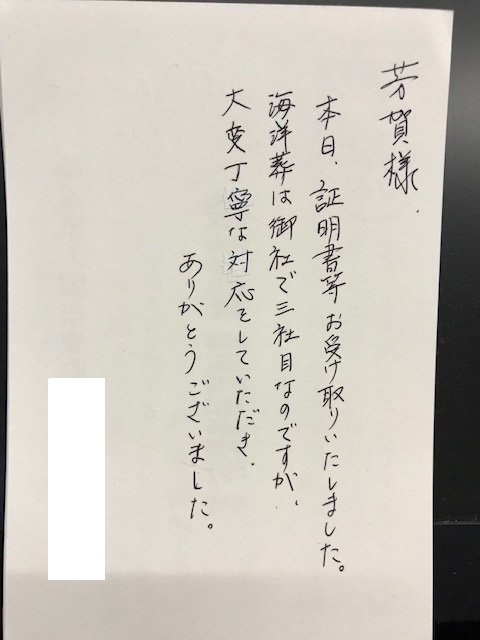 芳賀様.
本日、証明書等お受け取りいたしました。
海洋葬は御社で三社目なのですが、
大変丁寧な対応をしていただき、
ありがとうございました。